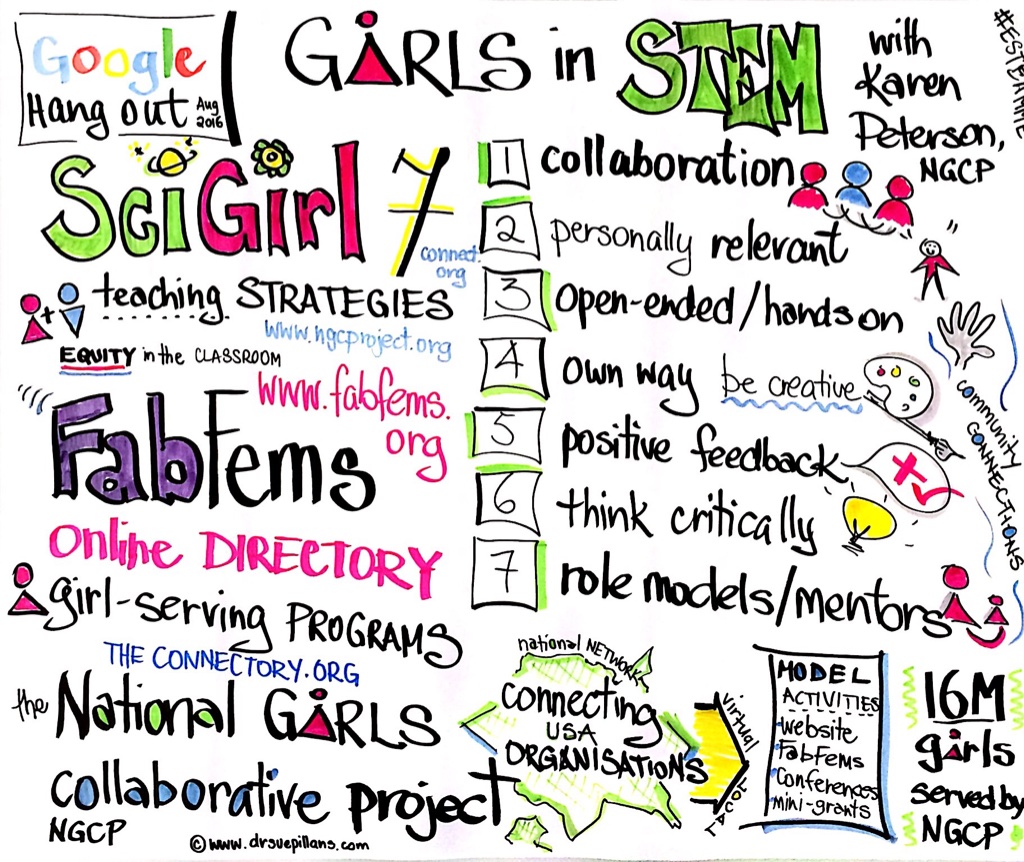 Google
Hang out Aug 2016
GiRLS in STEM
with
Karen
Peterson,
NGCP
#ESTEAMME
SciGirl 7
connect.
org
teaching STRATEGIES
www.ngcproject.org
EQUITY in the CLASSROOM
www.fabfems.
org
FabFems
Online DIRECTORY
girl-serving PROGRAMS
THE CONNECTORY.ORG
1 collaboration
2 personally relevant
3 open-ended/hands on
4 own way be creative
5 positive feedback
6 think critically
7 role models/mentors
community
CONNECTIONS
the National GiRLS
collaborative project
NGCP
© www.drsuepillans.com
national NETWORK
connecting
USA
ORGANISATIONS
virtual
LOCAL
MODEL
ACTIVITIES
website
FabFems
Conferences
mini-grants
16M
girls
served by
NGCP